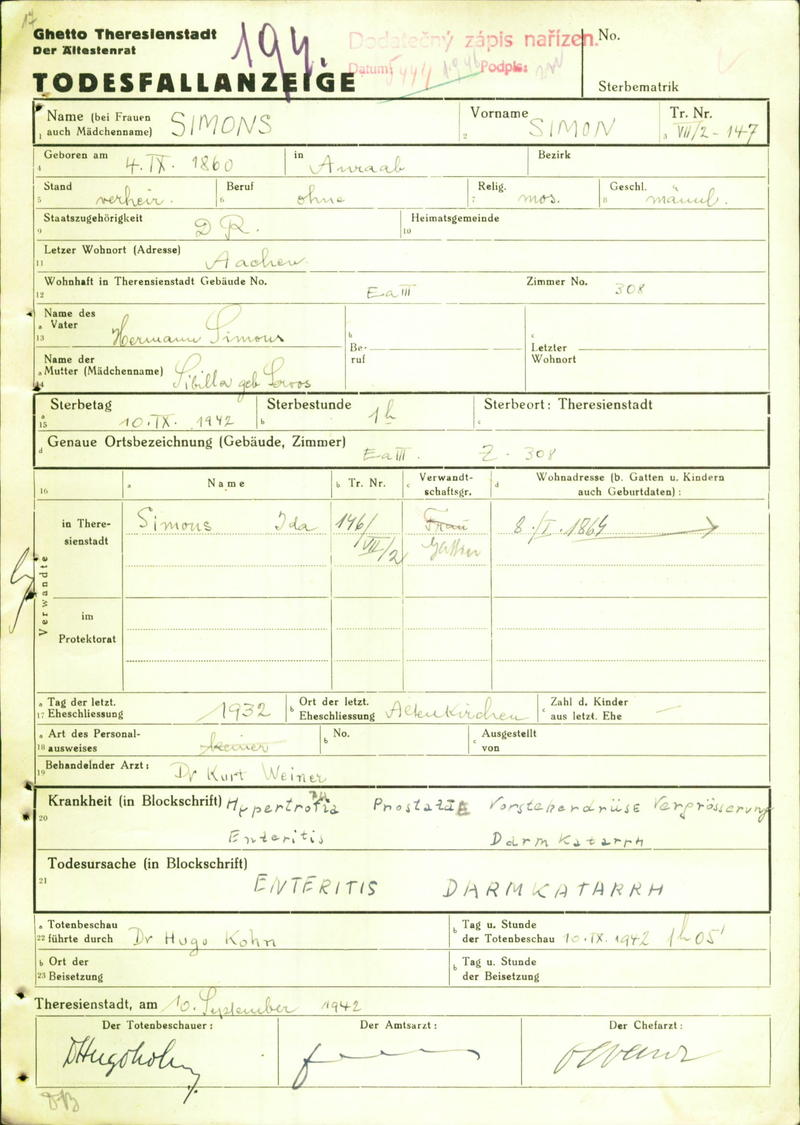 17
Ghetto Theresienstadt
Der Ältestenrat
194.
Dodatečný zápis nařízen.
Datum: Podpis:
No.
TODESFALLANZEIGE
Sterbematrik
Name (bei Frauen auch Mädchenname) SIMONS
1
Vorname SIMON
2
Tr. Nr. VII/2-147
3
Geboren am 4. IX. 1860 in
4
Bezirk
Stand verheir. Beruf ohne Relig. mos. Geschl. männl.
5 6 7 8
Staatszugehörigkeit D R. Heimatsgemeinde
9 10
Letzer Wohnort (Adresse) Aachen
11
Wohnhaft in Therensienstadt Gebäude No. Ea III Zimmer No. 308
12
Name des Vater Hermann Simons
a 13
b Beruf
c Letzter Wohnort
Name der Mutter (Mädchenname) Sibilla geb
a 14
Sterbetag 10. IX. 1942 Sterbestunde 1h Sterbeort: Theresienstadt
a 15 b c
Genaue Ortsbezeichnung (Gebäude, Zimmer) Ea III. Z. 308
d
16 a Name b Tr. Nr. c Verwandtschaftsgr. d Wohnadresse (b. Gatten u. Kindern auch Geburtdaten):
Verwandte
in Theresienstadt Simons Ida 146/VII/2 Frau Gattin 8. I. 1864
im Protektorat
a 17 Tag der letzt. Eheschliessung 1932 b Ort der letzt. Eheschliessung Altenkirchen c Zahl d. Kinder aus letzt. Ehe —
a 18 Art des Personalausweises keiner b No. c Ausgestellt von
19 Behandelnder Arzt: Dr Kurt Weiner
Krankheit (in Blockschrift) Hypertrofia Prostatae Vorsteherdrüse Vergrösserung
20 Enteritis Darm Katarrh
Todesursache (in Blockschrift)
21 ENTERITIS DARMKATARRH
a 22 Totenbeschau führte durch Dr Hugo Kohn b Tag u. Stunde der Totenbeschau 10. IX. 1942 1h05'
b 23 Ort der Beisetzung b Tag u. Stunde der Beisetzung
Theresienstadt, am 10. September 1942
Der Totenbeschauer: Der Amtsarzt: Der Chefarzt: